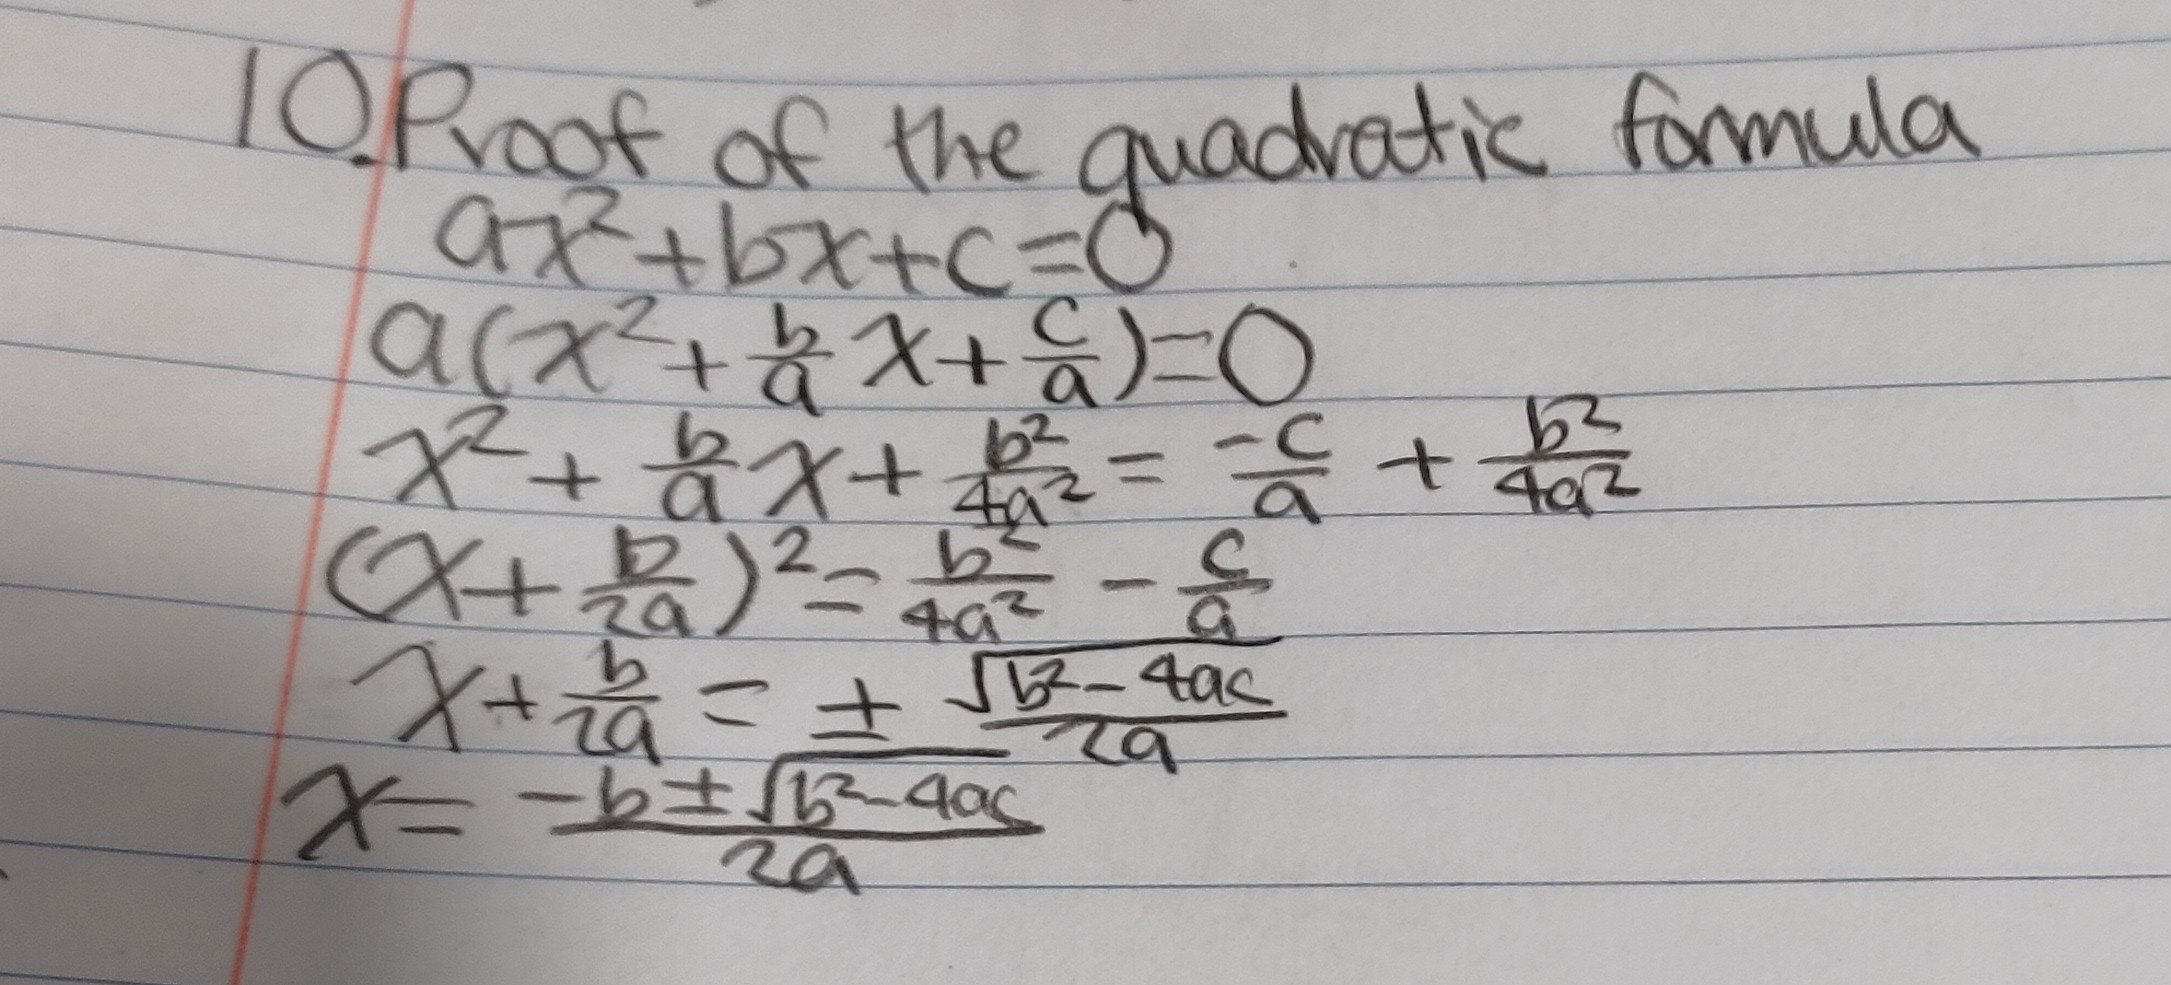 10. Proof of the quadratic formula
ax² + bx + c = 0
a(x² + b/a x + c/a) = 0
x² + b/a x + b²/4a² = -c/a + b²/4a²
(x + b/2a)² = b²/4a² - c/a
x + b/2a = ± √(b² - 4ac)/2a
x = (-b ± √(b² - 4ac))/2a